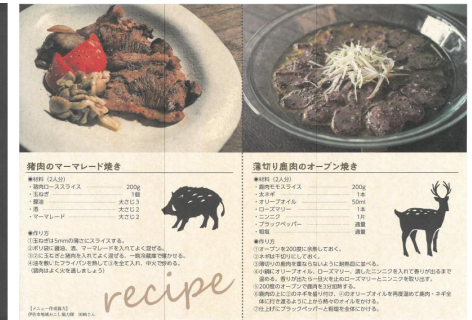 猪肉のマーマレード焼き
●材料（2人分）
・猪肉ローススライス 200g
・玉ねぎ 1個
・醤油 大さじ3
・酒 大さじ2
・マーマレード 大さじ2
●作り方
①玉ねぎは5mmの薄さにスライスする。
②ポリ袋に醤油、酒、マーマレードを入れてよく混ぜる。
③②に玉ねぎと猪肉を入れてよく混ぜる、一晩冷蔵庫で寝かせる。
④油を敷いたフライパンを熱して③を全て入れ、中火で炒める。
(猪肉はよく火を通しましょう)
recipe
【メニュー作成協力】
薄切り鹿肉のオーブン焼き
●材料（2人分）
・鹿肉モモスライス 200g
・太ネギ 1本
・オリーブオイル 50ml
・ローズマリー 1本
・ニンニク 1片
・ブラックペッパー 適量
・粗塩 適量
●作り方
①オーブンを200度に余熱しておく。
②ネギは千切りにしておく。
③薄切りの鹿肉を重ならないように耐熱皿に並べる。
④小鍋にオリーブオイル、ローズマリー、潰したニンニクを入れて香りが出るまで
温める。香りが出たら一旦火を止めローズマリーとニンニクを取り出す。
⑤200度のオーブンで鹿肉を3分加熱する。
⑥鹿肉の上に②のネギを盛り付け、④のオリーブオイルを再度温めて鹿肉・ネギ全
体に行き渡るように上から熱々のオイルをかける。
⑦仕上げにブラックペッパーと粗塩を全体にかける。